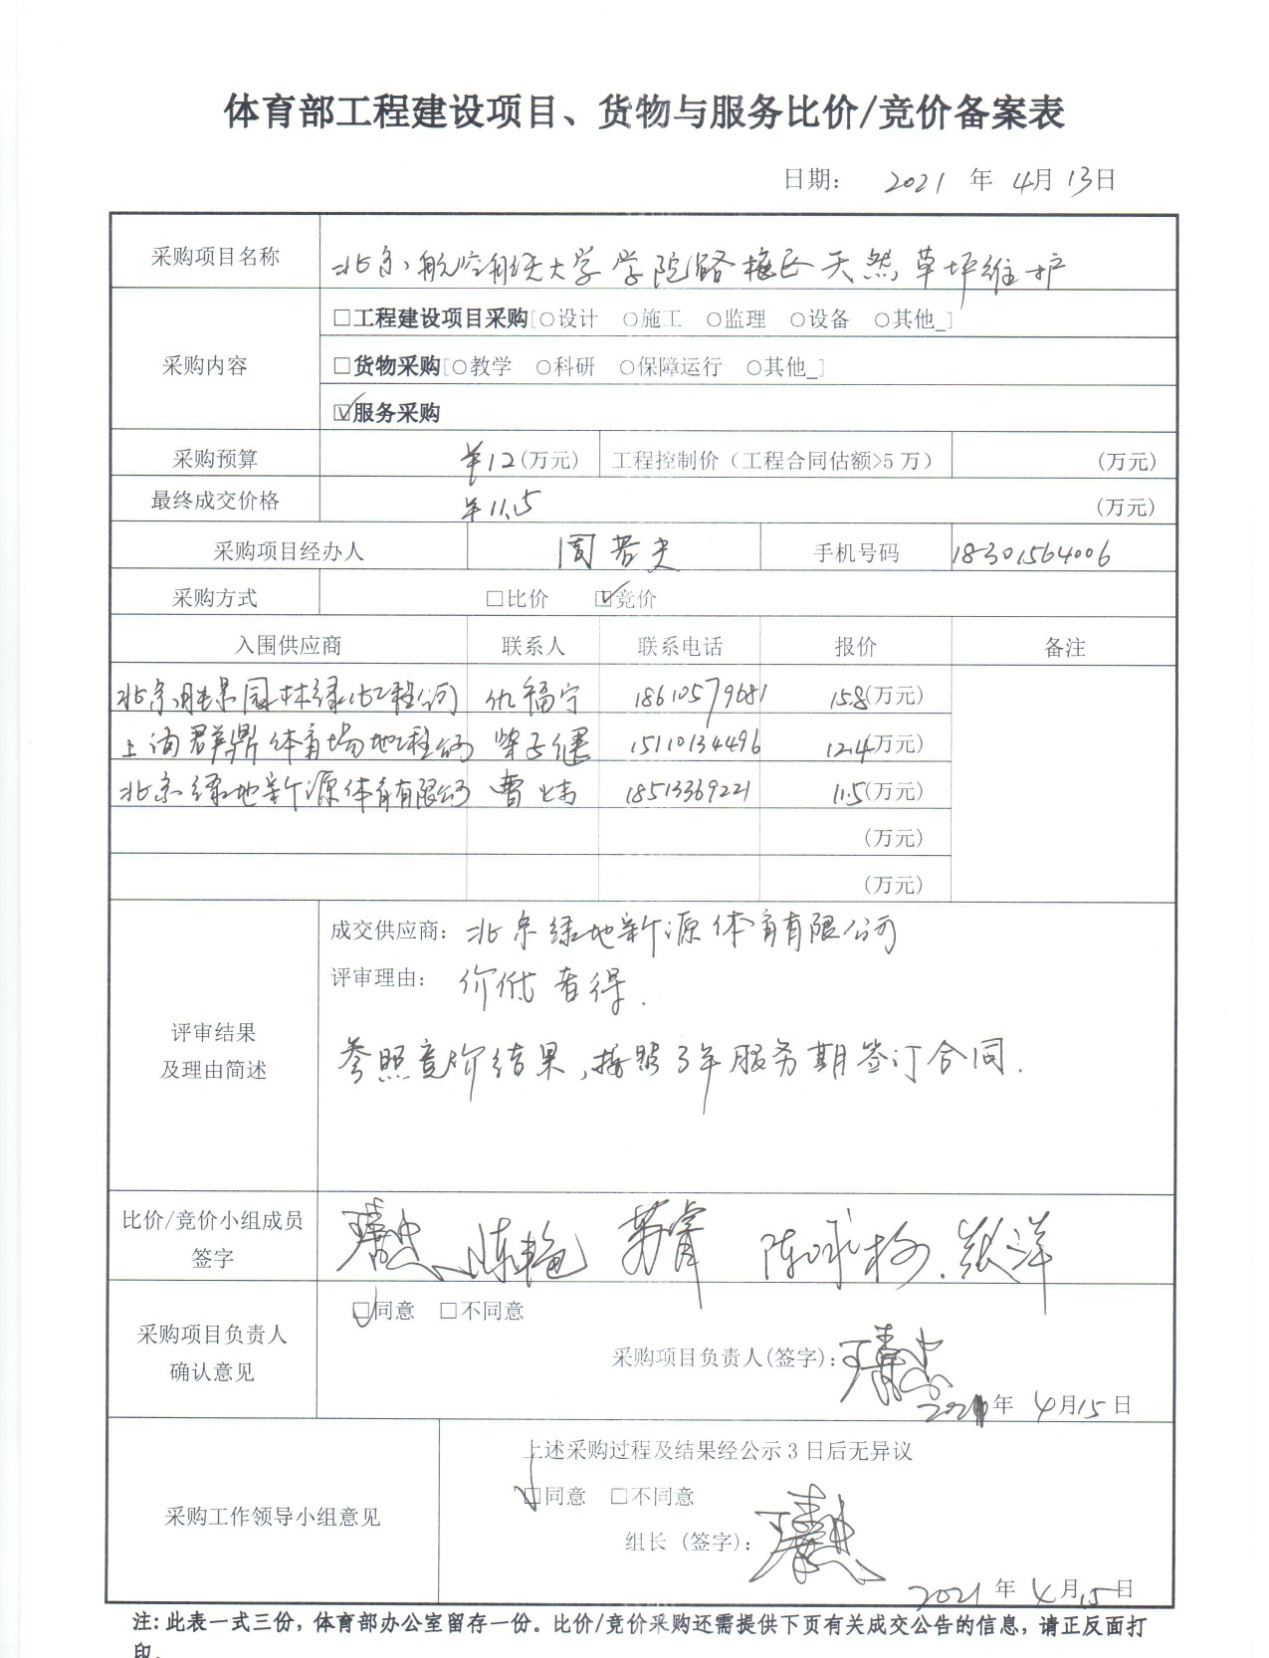 体育部工程建设项目、货物与服务比价/竞价备案表
日期： 2021 年 4月13日
采购项目名称 北京航空航天大学学院路校区天然草坪维护
采购内容
□工程建设项目采购[○设计 ○施工 ○监理 ○设备 ○其他_]
□货物采购[○教学 ○科研 ○保障运行 ○其他_]
☑服务采购
采购预算 ¥12(万元) 工程控制价（工程合同估额>5万） (万元)
最终成交价格 ¥11.5 (万元)
采购项目经办人 周若夫 手机号码 18301564006
采购方式 □比价 ☑竞价
入围供应商 联系人 联系电话 报价 备注
北京胜景园林绿化工程公司 仇福宁 18610579681 15.8(万元)
上海群鼎体育场地工程公司 柴子健 15110134496 12.4(万元)
北京绿地新源体育有限公司 曹炜 18513369221 11.5(万元)
(万元)
(万元)
评审结果
及理由简述
成交供应商：北京绿地新源体育有限公司
评审理由：价低者得.
参照竞价结果,按照3年服务期签订合同.
比价/竞价小组成员
签字
陈艳 苏睿 张洋
采购项目负责人
确认意见
☑同意 □不同意
采购项目负责人(签字)：
2021年 4月15日
采购工作领导小组意见
上述采购过程及结果经公示3日后无异议
☑同意 □不同意
组长（签字）：
2021 年 4月15日
注：此表一式三份，体育部办公室留存一份。比价/竞价采购还需提供下页有关成交公告的信息，请正反面打
印。